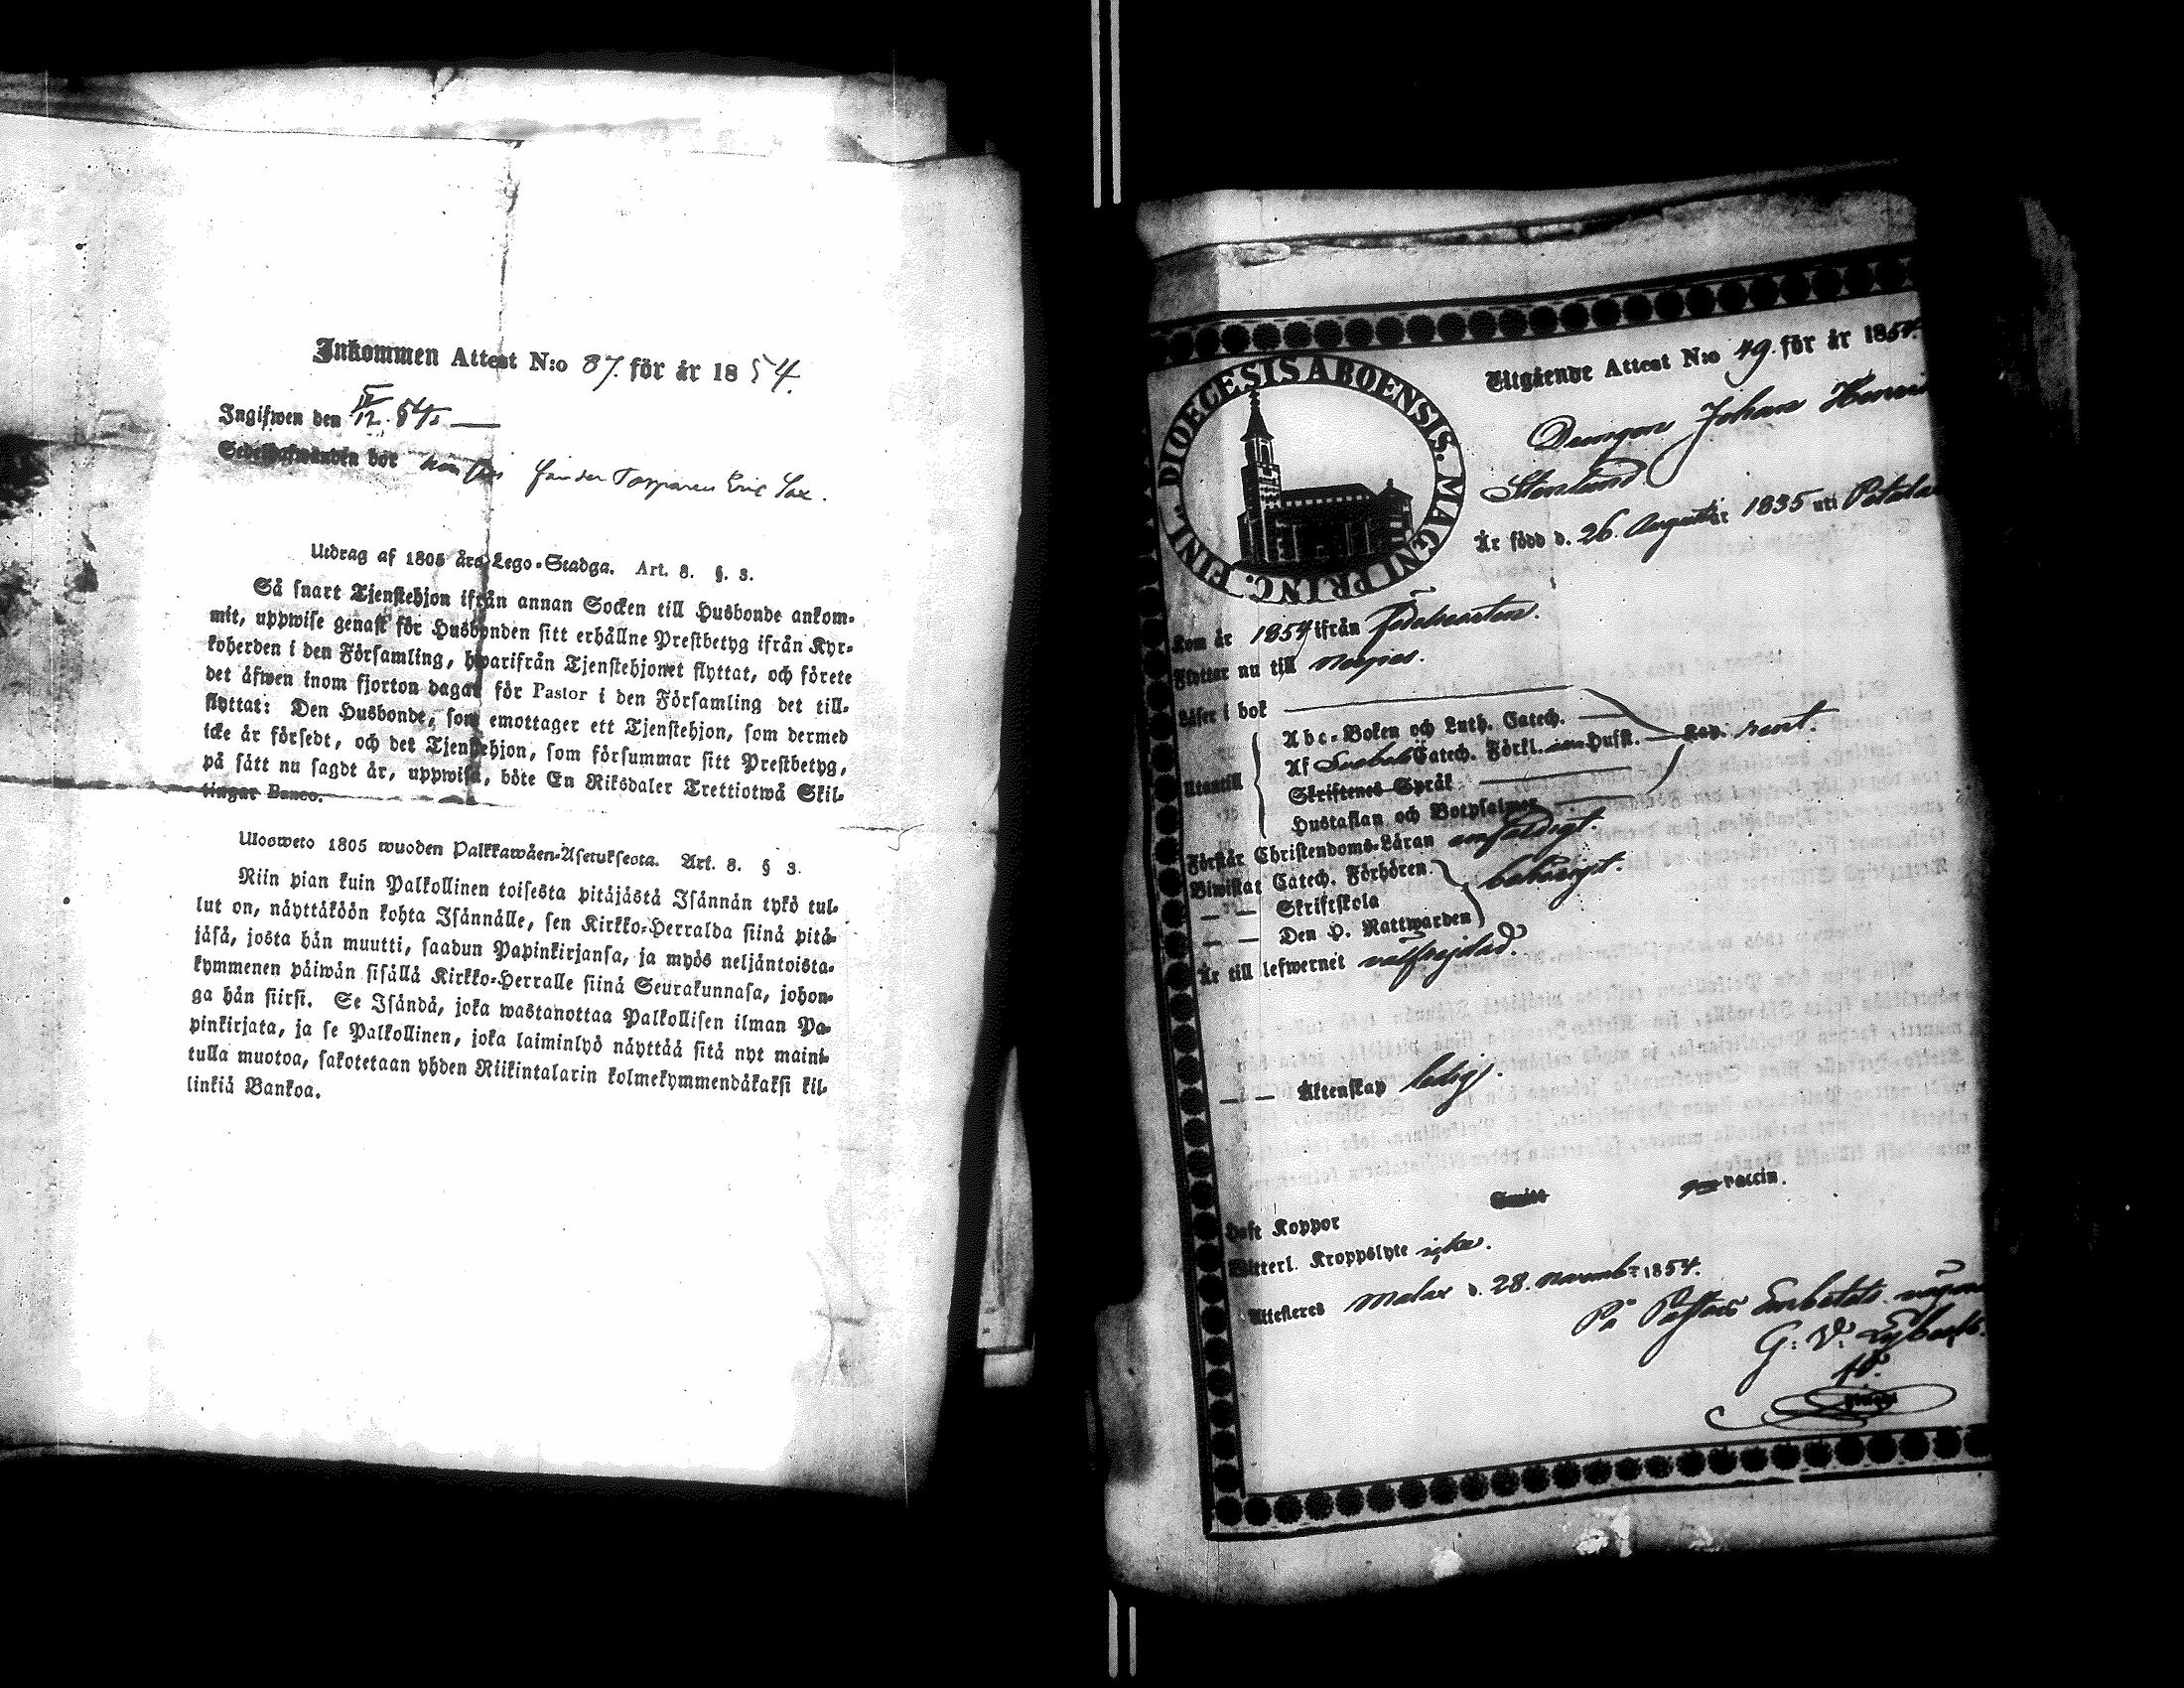 Inkommen Attest N:o 87. för år 1854.
Ingifwen den IV/12. 54
Sedelhafwanden bor hos Eric Sax.
Utdrag af 1805 års Lego-Stadga. Art. 8. §. 3.
Så snart Tjenstehjon ifrån annan Socken till Husbonde ankom-
mit, uppwise genast för Husbonden sitt erhållne Prestbetyg ifrån Kyr-
koherden i den Församling, hwarifrån Tjenstehjonet flyttat, och förete
det åfwen inom fjorton dagar för Pastor i den Församling det till-
flyttat: Den Husbonde, som emottager ett Tjenstehjon, som dermed
icke år försedt, och det Tjenstehjon, som försummar sitt Prestbetyg,
på sått nu sagdt år, uppwisa, böte En Riksdaler Trettiotwå Skil-
lingar Banco.
Ulosweto 1805 wuoden Palkkawåen-Asetuksesta. Art. 8. § 3.
Niin pian kuin Palkollinen toisesta pitåjåstå Isånnån tykö tul-
lut on, nåyttåköön kohta Isånnålle, sen Kirkko-Herralda siinå pitå-
jåså, josta hån muutti, saadun Papinkirjansa, ja myös neljåntoista-
kymmenen påiwån sisållå Kirkko-Herralle siinå Seurakunnasa, johon-
ga hån siirsi. Se Isåndå, joka wastanottaa Palkollisen ilman Pa-
pinkirjata, ja se Palkollinen, joka laiminlyö nåyttåå sitå nyt maini-
tulla muotoa, sakotetaan yhden Riikintalarin kolmekymmendåkaksi kil-
linkiå Bankoa.
DIOECESIS ABOENSIS. MAGNI PRINC. FINL.
Utgående Attest N:o 49. för år 1854.
Drengen Johan Henric
Stenlund
År född d. 26. Augusti år 1835 uti Petalax
Kom år 1854 ifrån Födelseorten.
Flyttar nu till Nerpes.
Låser i bok
Utantill
Abc-Boken och Luth. Catech.
Af Svebelii Catech. Förkl. Husst. Kap. rent.
Skriftenes Språk
Hustaflan och Botpsalmer
Förstår Christendoms-Låran enfaldigt.
Biwistat Catech. Förhören
— — Skriftskola behörigt.
— — Den H. Nattwarden
År till lefwernet välfrejdad.
— — Åktenskap ledig.
Haft Koppor vaccin.
Witterl. Kroppslyte icke.
Attesteres Malax d. 28. Novemb:r 1854.
På Pastors Embetets vägnar
G: W: